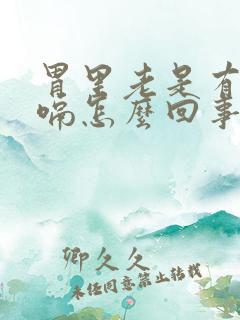 胃里老是有
喘怎麼回事
卿久久
未经同意禁止转载